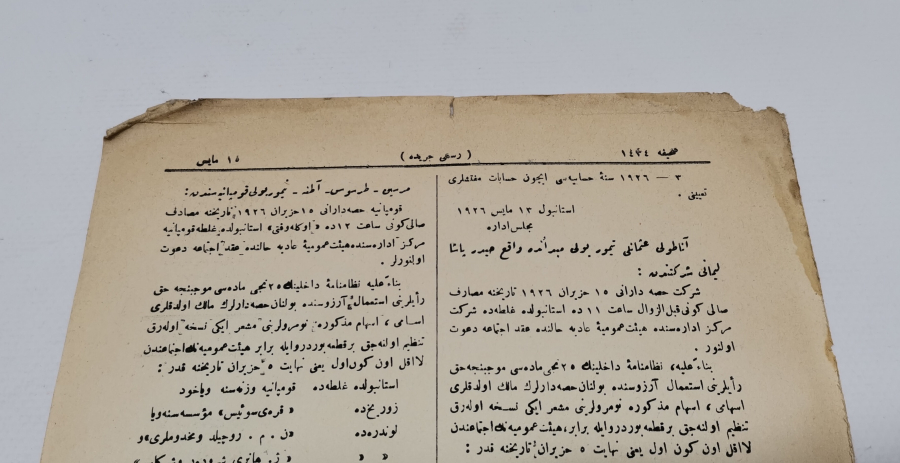 صحیفه ١٤٣٤
( رسمی جریده )
١٥ مایس
٣ — ١٩٢٦ سنهٔ حسابیه‌سی ایچون حسابات مفتشلری
تعیینی .
استانبول ١٣ مایس ١٩٢٦
مجلس اداره
آناطولی عثمانلی تیمور یولی میدانده واقع حیدر پاشا
لیمانی شرکتندن :
شرکت حصه دارانی ١٥ حزیران ١٩٢٦ تاریخنه مصادف
صالی کونی قبل الزوال ساعت ١١ ده استانبولده غلطه‌ده شرکت
مرکز اداره‌سنده هیئت عمومیهٔ عادیه حالنده عقد اجتماعه دعوت
اولنور .
بناءً علیه، نظامنامهٔ داخلینك ٢٥ نجی ماده‌سی موجبنجه حق
رأیلرینی استعمال آرزوسنده بولنان حصه‌دارلرك مالك اولدقلری
اسهامی ، اسهام مذکوره نومرولرینی مشعر ایکی نسخه اوله‌رق
تنظیم اولنه‌جق بر قطعه بوردرو ایله برابر، هیئت عمومیه‌نك اجتماعندن
لااقل اون کون اول یعنی نهایت ٥ حزیران تاریخنه قدر :
مرسین - طرسوس - آطنه - تیمور یولی قومپانیه سندن :
قومپانیه حصه‌دارانی ١٥ حزیران ١٩٢٦ تاریخنه مصادف
صالی کونی ساعت ١٢ ده « اوکله وقتی » استانبولده غلطه قومپانیه
مرکز اداره‌سنده هیئت عمومیهٔ عادیه حالنده عقد اجتماعه دعوت
اولنورلر .
بناءً علیه نظامنامهٔ داخلینك ٢٥ نجی ماده‌سی موجبنجه حق
رأیلرینی استعمال آرزوسنده بولنان حصه‌دارلرك مالك اولدقلری
اسهامی ، اسهام مذکوره نومرولرینی مشعر ایکی نسخه اوله‌رق
تنظیم اولنه‌جق بر قطعه بوردرو ایله برابر هیئت عمومیه‌نك اجتماعندن
لااقل اون کون اول یعنی نهایت ٥ حزیران تاریخنه قدر :
استانبولده غلطه‌ده قومپانیه وزنه‌سنه ویاخود
زوریخده « قره‌دی سوئیس » مؤسسه‌سنه ویا
لوندره‌ده « ن . م . روچیلد و مخدوملری » و
» »